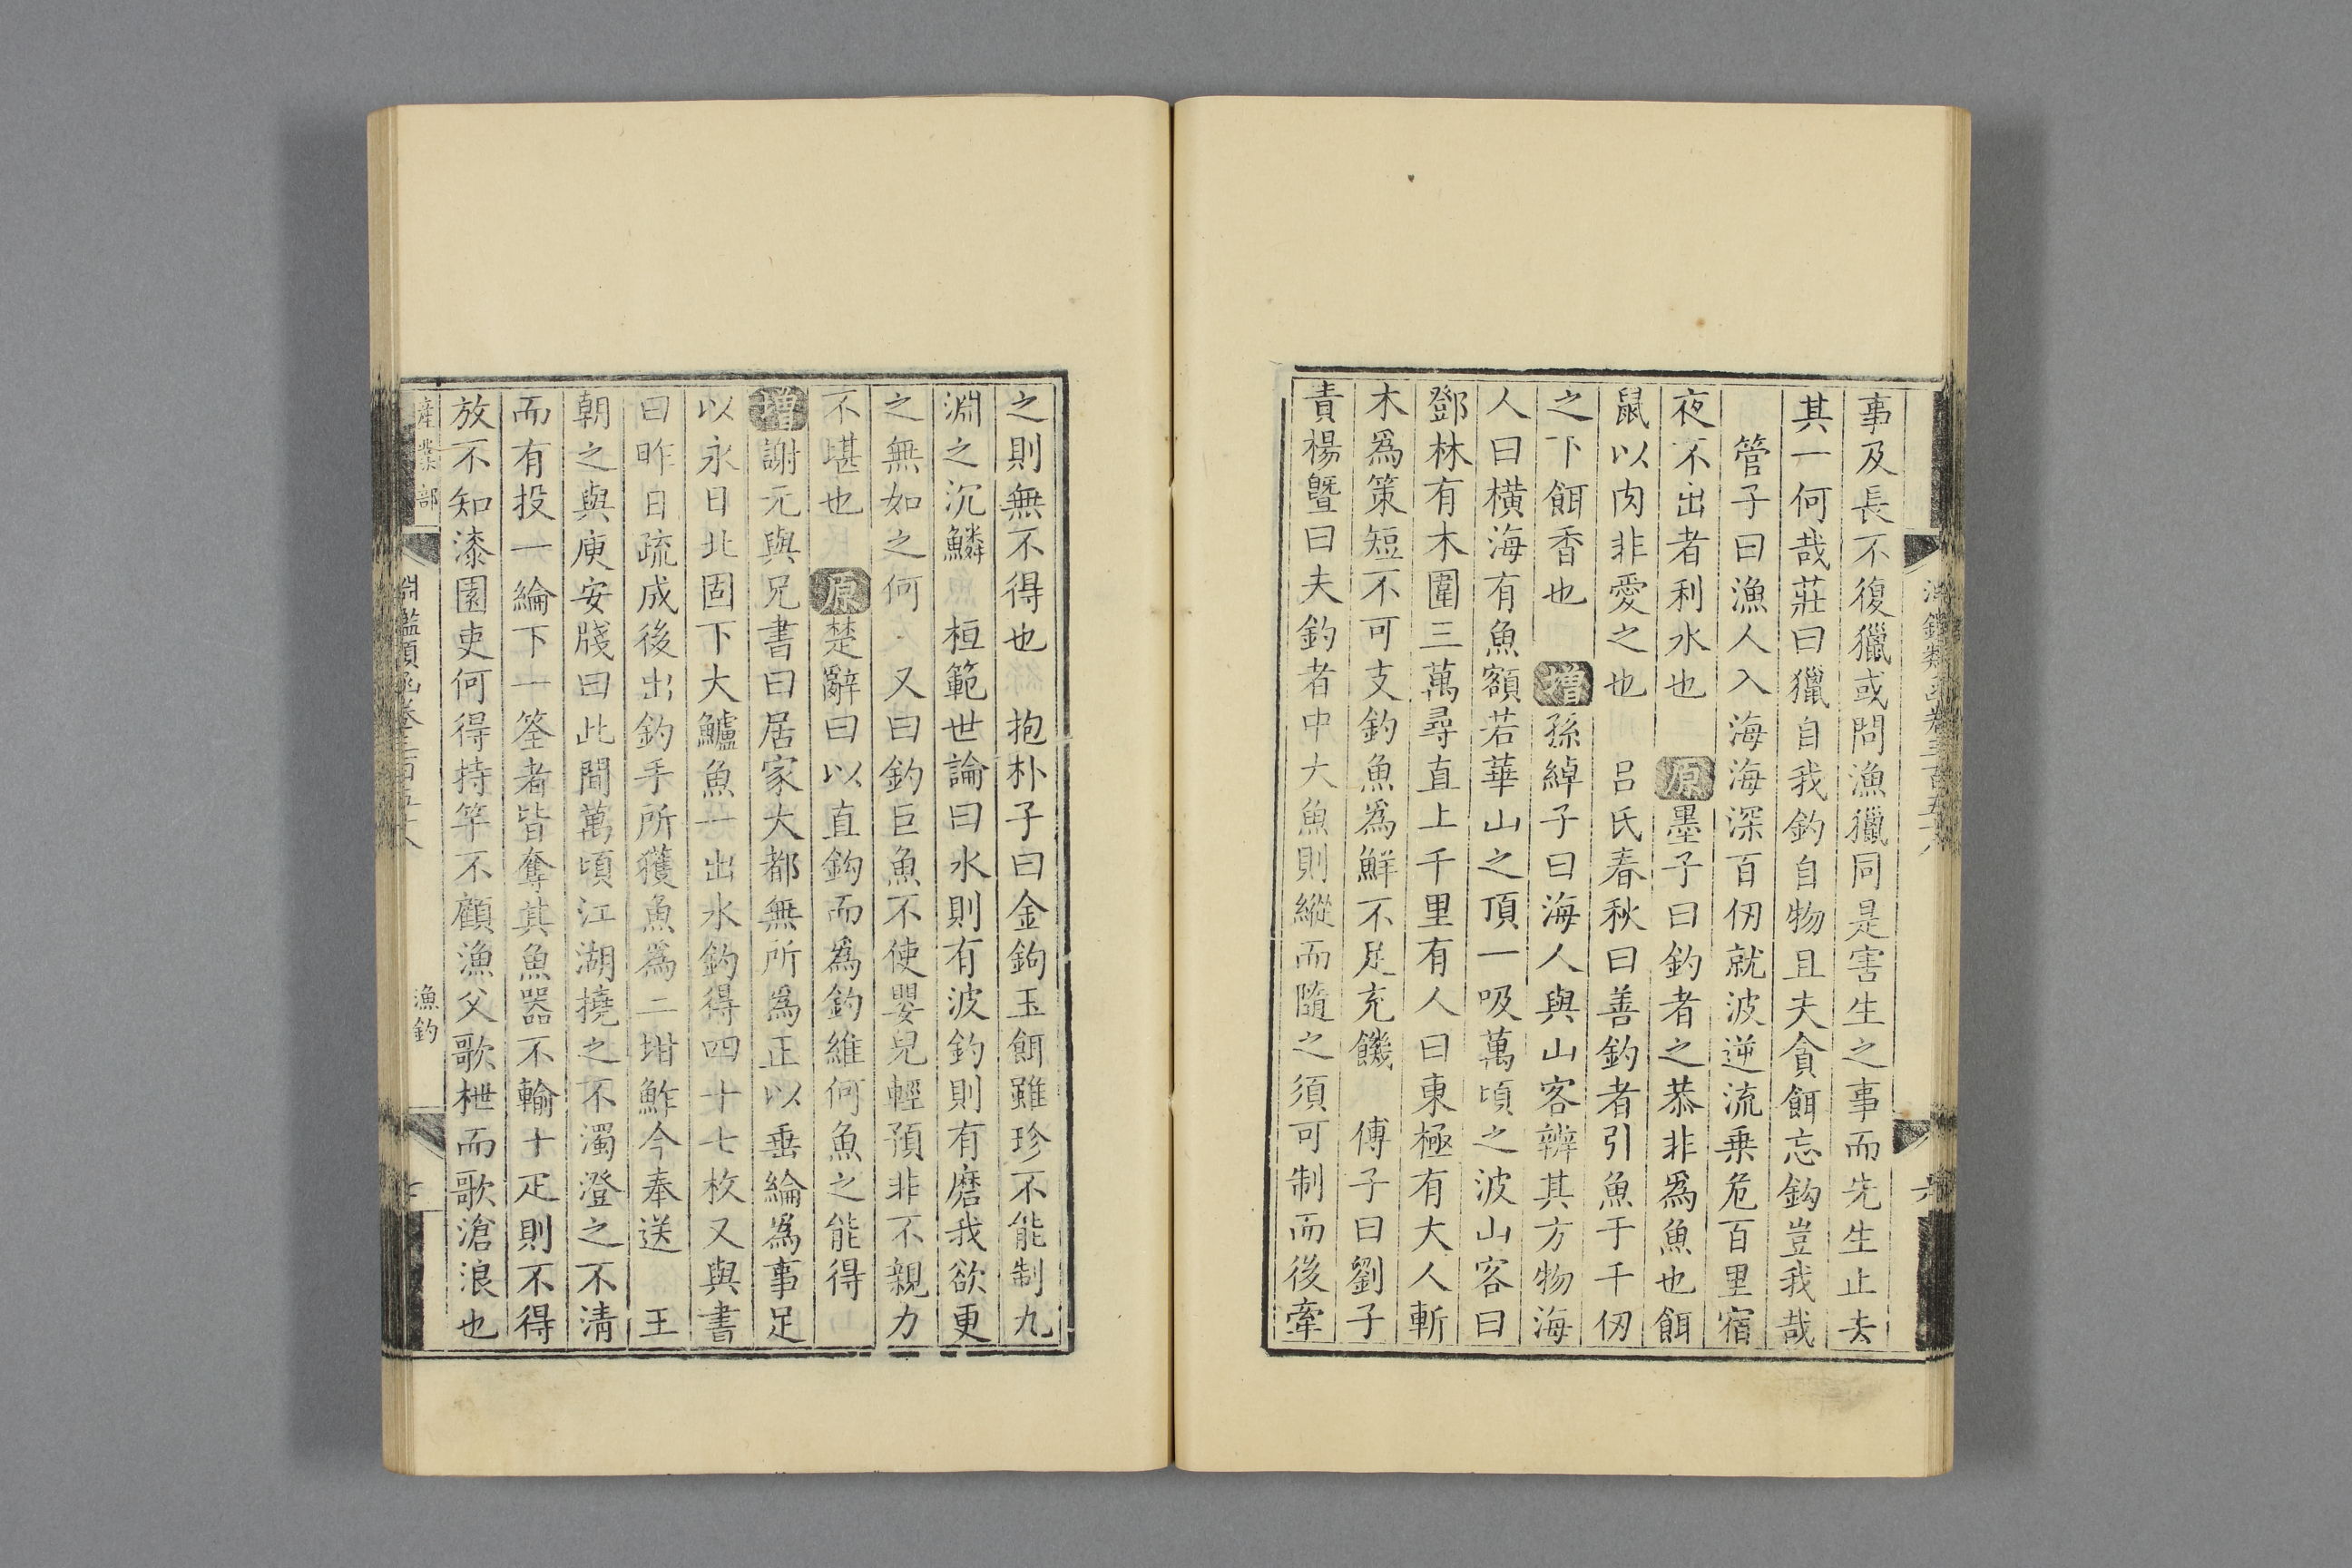 事及長不復獵或問漁獵同是害生之事而先生止去
其一何哉莊曰獵自我釣自物且夫貪餌忘鈎豈我哉
管子曰漁人入海海深百仞就波逆流乗危百里宿
夜不出者利水也 原墨子曰釣者之恭非爲魚也餌
鼠以肉非愛之也 吕氏春秋曰善釣者引魚于千仞
之下餌香也 增孫綽子曰海人與山客辨其方物海
人曰横海有魚額若華山之頂一吸萬頃之波山客曰
鄧林有木圍三萬尋直上千里有人曰東極有大人斬
木爲策短不可支釣魚爲鮮不足充饑 傅子曰劉子
責楊曁曰夫釣者中大魚則縱而隨之須可制而後牽
之則無不得也 抱朴子曰金鉤玉餌雖珍不能制九
淵之沉鱗 桓範世論曰水則有波釣則有磨我欲更
之無如之何 又曰釣巨魚不使嬰兒輕預非不親力
不堪也 原楚辭曰以直鈎而爲釣維何魚之能得
增謝元與兄書曰居家大都無所爲正以垂綸爲事足
以永日北固下大鱸魚一出水釣得四十七枚又與書
曰昨日疏成後出釣手所獲魚爲二坩鮓今奉送 王
朝之與庾安牋曰此間萬頃江湖撓之不濁澄之不淸
而有投一綸下一筌者皆奪其魚器不輸十疋則不得
放不知漆園吏何得持竿不顧漁父歌枻而歌滄浪也
產業部
淵鑑類函卷三百五十八
漁釣